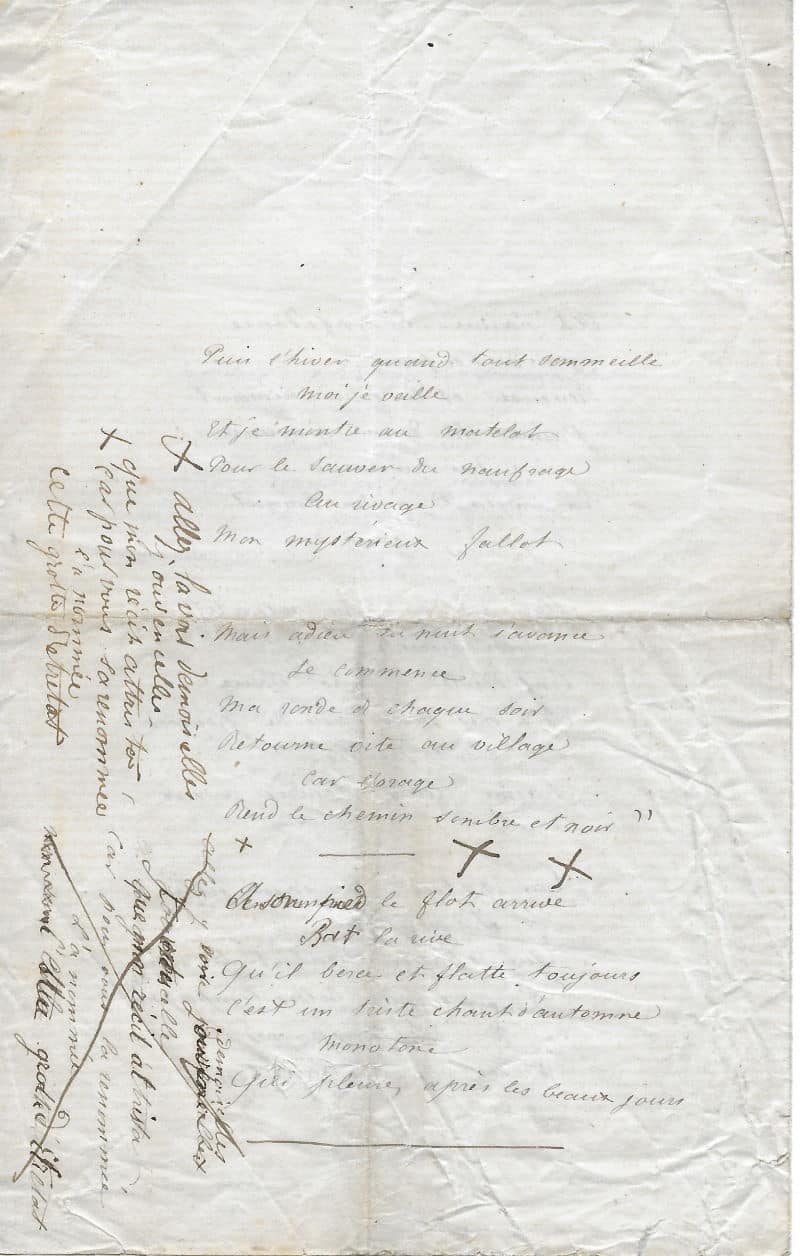 Puis l'hiver quand tout sommeille
moi je veille
Et je montre au matelot
Pour le sauver du naufrage
Au rivage
Mon mystérieux fallot
Mais adieu la nuit s'avance
Je commence
Ma ronde de chaque soir
Retourne vite au village
Car l'orage
Rend le chemin sombre et noir "
le flot arrive
Bat la rive
Qu'il berce et flatte toujours
C'est un triste chant d'automne
Monotone
Qui pleure après les beaux jours
X allez la voir demoiselles
jouvencelles
que mon récit attrista
X car pour vous sa renommée
l'a nommée
cette grotte d'Etretat
allez y voir demoiselles
que mon récit attrista
Car pour vous la renommée
l'a nommée
grotte d'Etretat